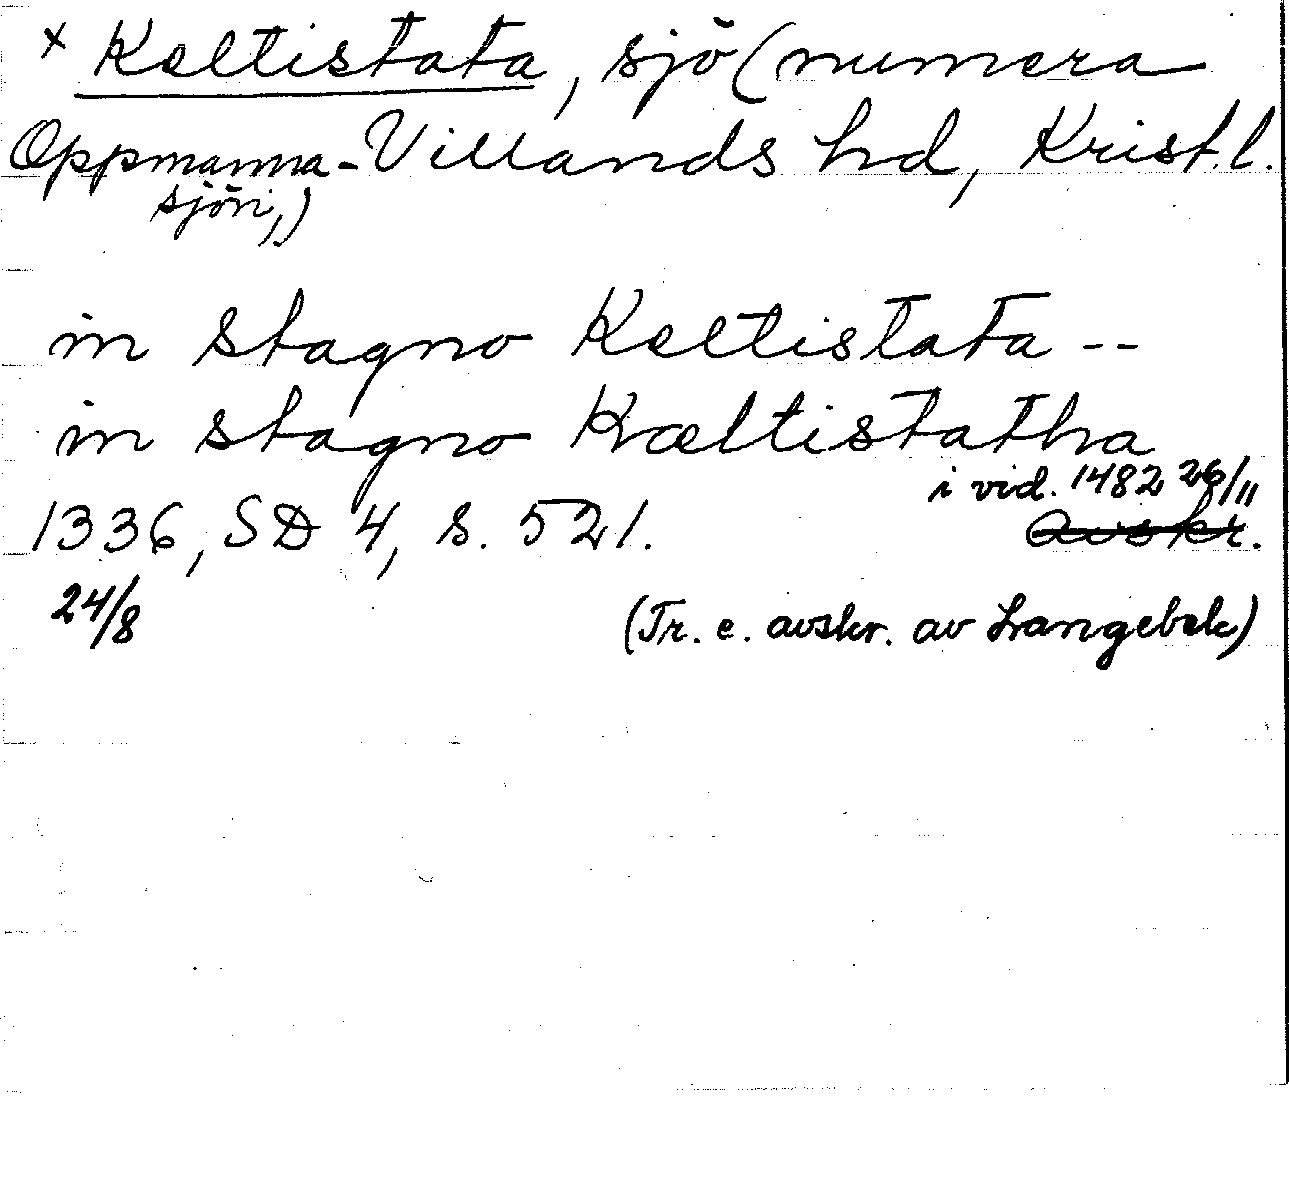 x Keltistata, sjö (numera
Oppmanna- Villands hd, Krist.l.
sjön,)
in stagno Keltistata --
in stagno Kæltistatha
i vid. 1482 26/11
1336, SD 4, s. 521. avskr.
24/8 (Tr. e. avskr. av Langebek)